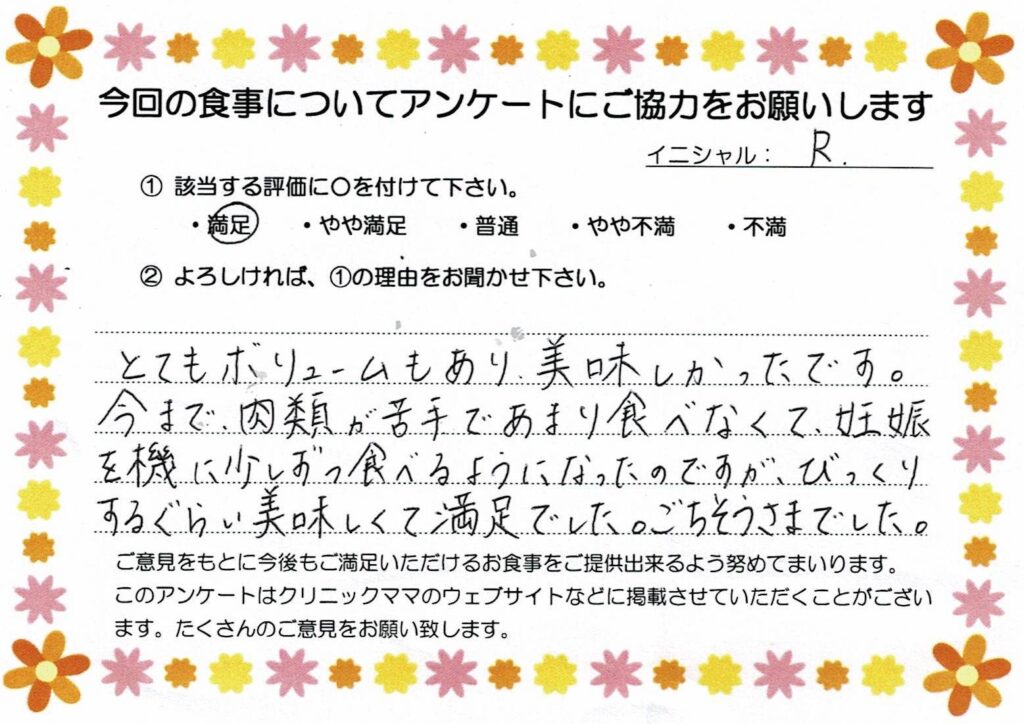 今回の食事についてアンケートにご協力をお願いします
イニシャル： R.
① 該当する評価に〇を付けて下さい。
・満足 ・やや満足 ・普通 ・やや不満 ・不満
② よろしければ、①の理由をお聞かせ下さい。
とてもボリュームもあり、美味しかったです。
今まで、肉類が苦手であまり食べなくて、妊娠
を機に少しずつ食べるようになったのですが、びっくり
するぐらい美味しくて満足でした。ごちそうさまでした。
ご意見をもとに今後もご満足いただけるお食事をご提供出来るよう努めてまいります。
このアンケートはクリニックママのウェブサイトなどに掲載させていただくことがござい
ます。たくさんのご意見をお願い致します。